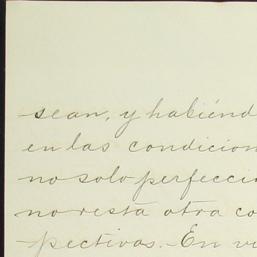 sean, y habiénd
en las condicion
no solo perfecci
no resta otra co
pectivas. En vi